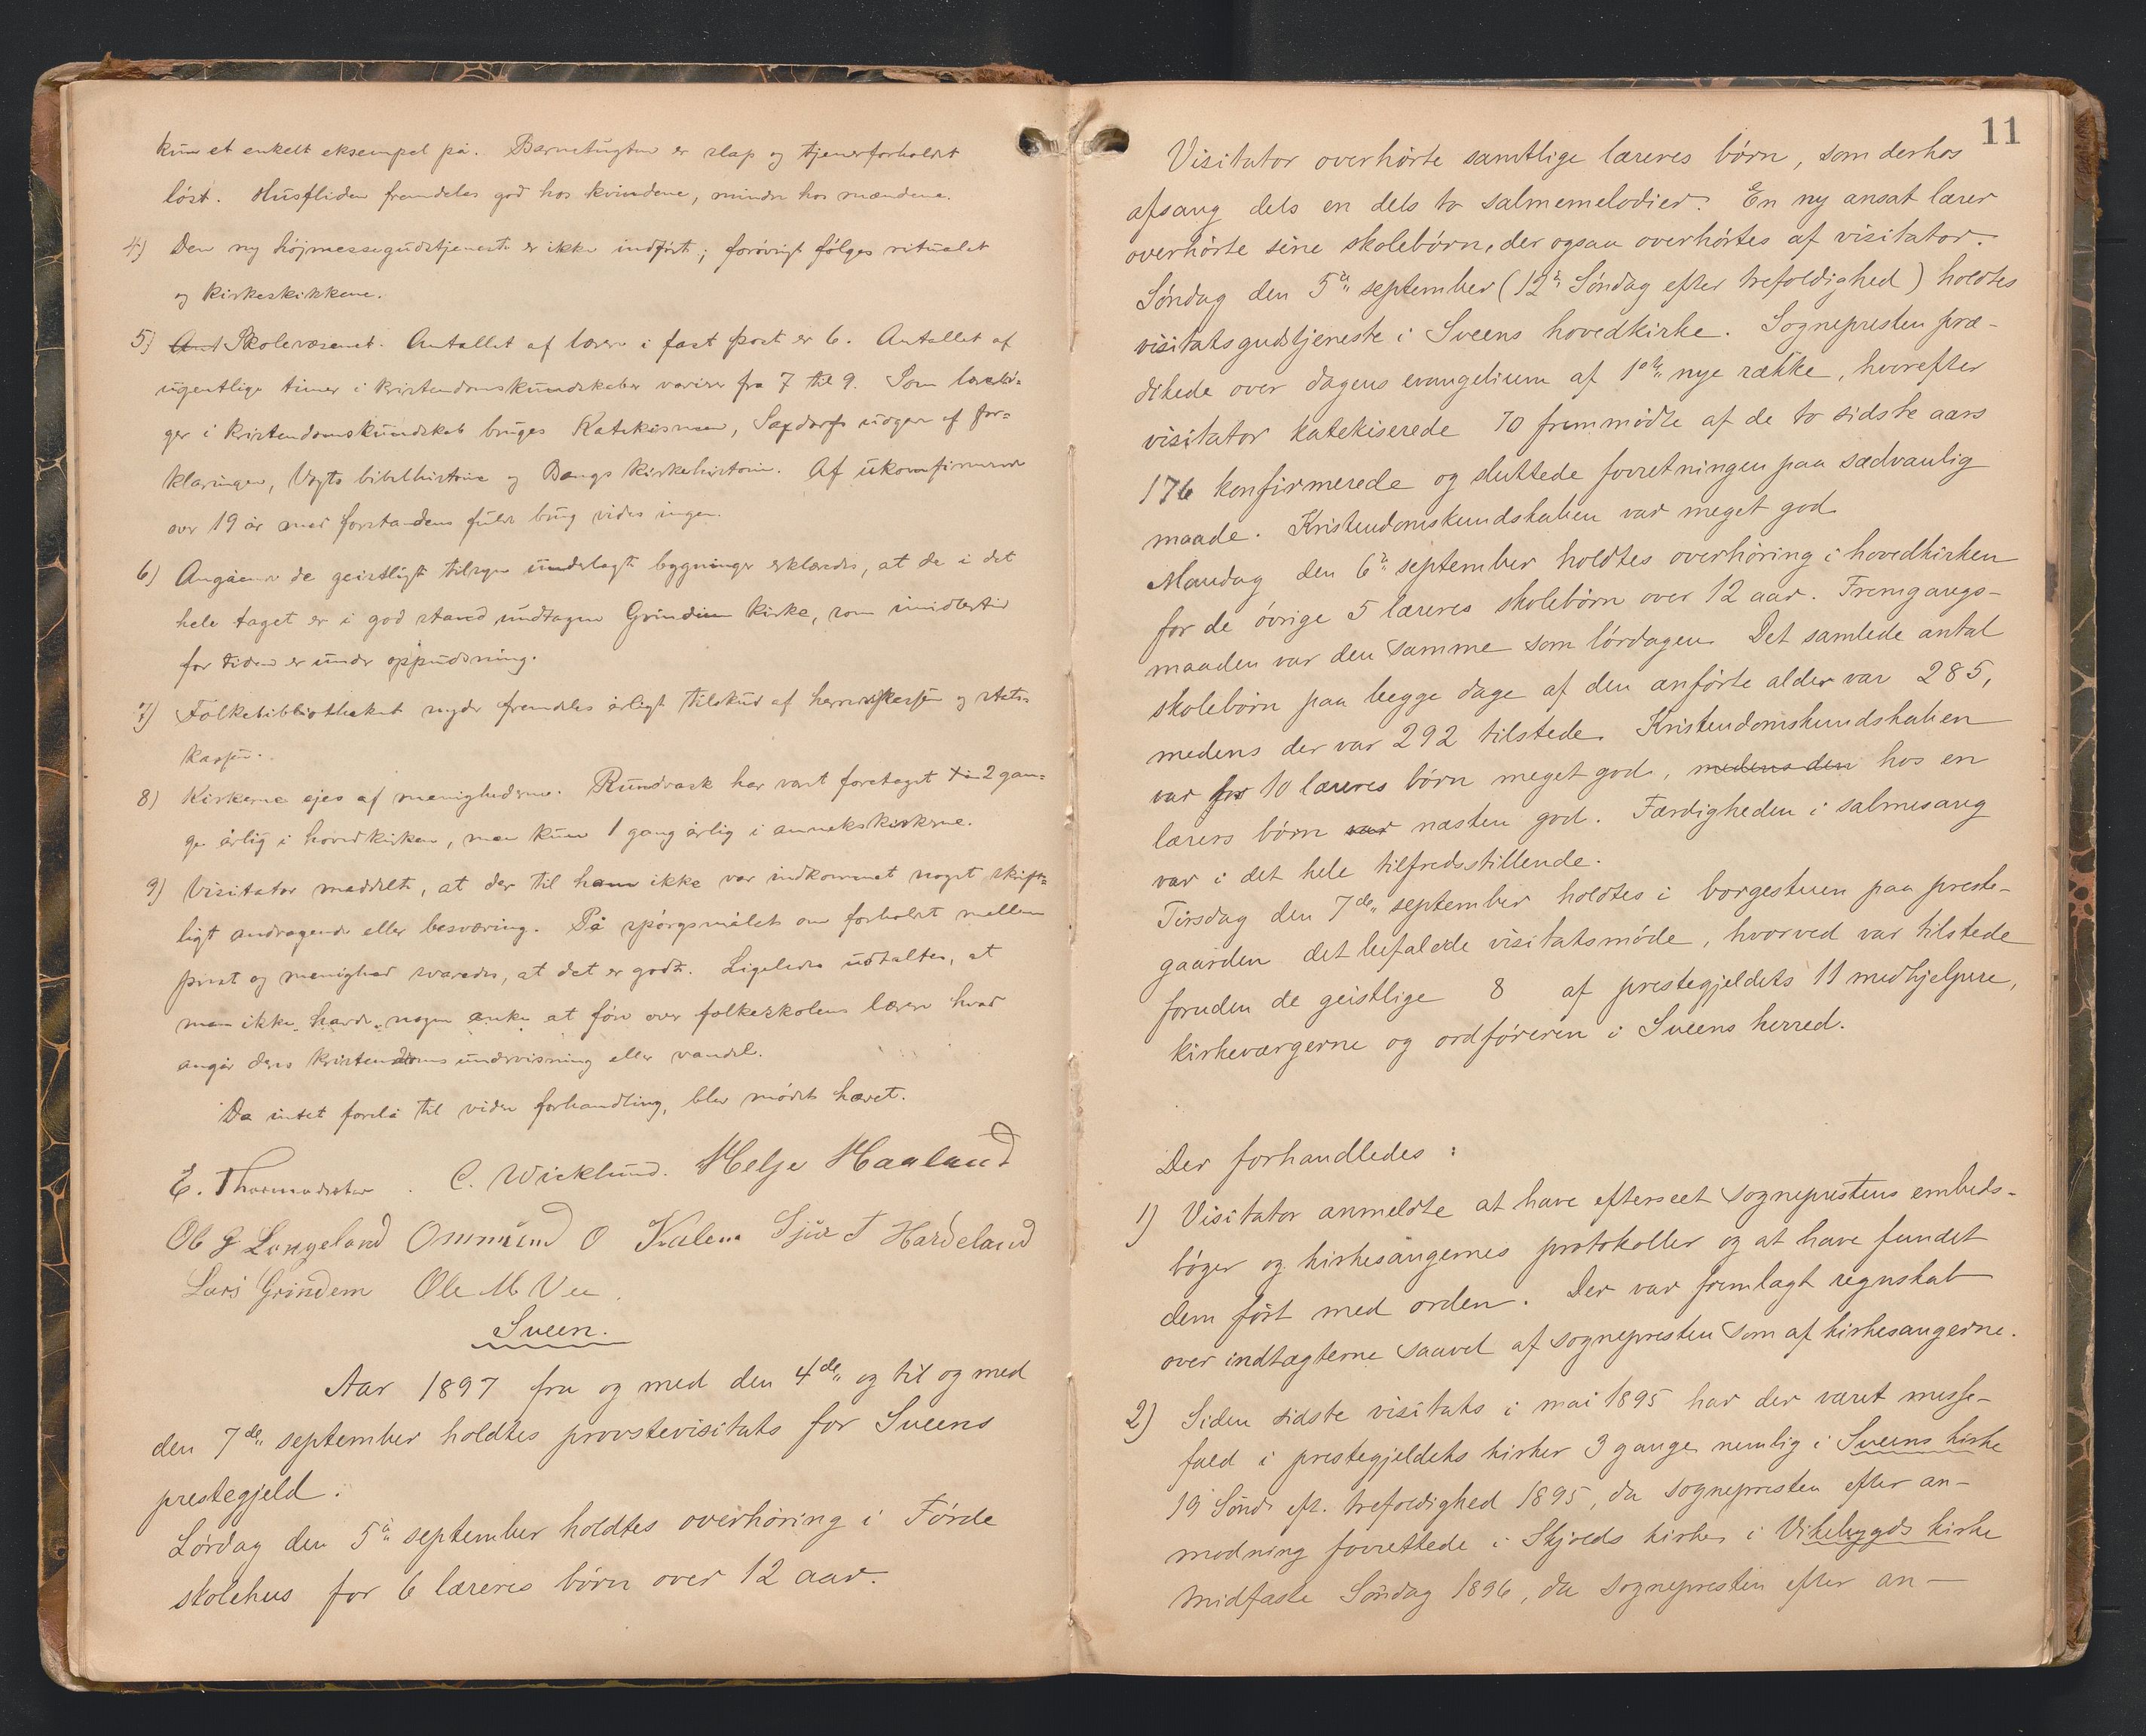 kun et enkelt eksempel på. Barnetugten er slap og tjenerforholdet
löst. Husfliden fremdeles god hos kvinderne, mindre hos mændene.
4) Den ny höjmessegudstjeneste er ikke indfört; forövrigt fölges ritualet
og kirkeskikkene.
5) Ant Skolevæsenet. Antallet af lærere i fast post er 6. Antallet af
ugentlige timer i kristendomskundskaber varierer fra 7 til 9. Som lærebö-
ger i kristendomskundskab bruges Katekismen, Saxdorfs udgave af for-
klaringen, Vogts bibelhistorie og Bangs kirkehistorie. Af ukonfirmerede
over 19 år med forstandens fulde brug vides ingen.
6) Angående de geistligt tilsyn underlagt bygninger erklæredes, at de i det
hele taget er i god stand undtagen Grindeim kirke, som imidlertid
for tiden er under oppudsning.
7) Folkebibliotheket nyder fremdeles årligt tilskud af herredskassen og stats-
kassen.
8) Kirkerne ejes af menighederne. Rundvask har vært foretaget 2 gan-
ge årlig i hovedkirken, men kun 1 gang årlig i annekskirkerne.
9) Visitator meddelte, at der til ham ikke var indkommet noget skrift-
ligt andragende eller besværing. På spörgsmålet om forholdet mellem
prest og menighed svaredes, at det er godt. Ligeledes udtaltes, at
man ikke havde nogen anke at före over folkeskolens lærere hvad
angår deres kristendomsundervisning eller vandel.
Da intet forelå til videre forhandling, blev mödet hævet.
E. Thormodsæter. C. Wicklund. Helje Haaland
Ol J Langeland Ommund O Kalem Sjur T Hardeland
Lars Grindem Ole M Vee.
Sveen.
Aar 1897 fra og med den 4de og til og med
den 7de september holdtes provstevisitats for Sveens
prestegjeld.
Lördag den 5te september holdtes overhöring i Förde
skolehus for 6 læreres börn over 12 aar.
11
Visitator overhörte samtlige læreres börn, som derhos
afsang dels en dels to salmemelodier. En ny ansat lærer
overhörte sine skolebörn, der ogsaa overhörtes af visitator.
Söndag den 5te september (12te Söndag efter trefoldighed) holdtes
visitatsgudstjeneste i Sveens hovedkirke. Sognepresten præ-
dikede over dagens evangelium af 1ste nye række, hvorefter
visitator katekiserede 70 fremmödte af de to sidste aars
176 konfirmerede og sluttede forretningen paa sædvanlig
maade. Kristendomskundskaben var meget god.
Mandag den 6te september holdtes overhöring i hovedkirken
for de övrige 5 læreres skolebörn over 12 aar. Fremgangs-
maaden var den samme som lördagen. Det samlede antal
skolebörn paa begge dage af den anförte alder var 285,
medens der var 292 tilstede. Kristendomskundskaben
var for 10 læreres börn meget god, medens den hos en
lærers börn var næsten god. Færdigheden i salmesang
var i det hele tilfredsstillende.
Tirsdag den 7de september holdtes i borgestuen paa preste-
gaarden det befalede visitatsmöde, hvorved var tilstede
foruden de geistlige 8 af prestegjeldets 11 medhjelpere,
kirkeværgerne og ordföreren i Sveens herred.
Der forhandledes:
1) Visitator anmeldte at have efterseet sogneprestens embeds-
böger og kirkesangernes protokoller og at have fundet
dem fört med orden. Der var fremlagt regnskab
over indtægterne saavel af sognepresten som af kirkesangerne.
2) Siden sidste visitats i mai 1895 har der været messe-
fald i prestegjeldets kirker 3 gange nemlig i Sveens kirke
19 Sönd. eft. trefoldighed 1895, da sognepresten efter an-
modning forrettede i Skjolds kirke, i Vikebygds kirke
midfaste Söndag 1896, da sognepresten efter an-